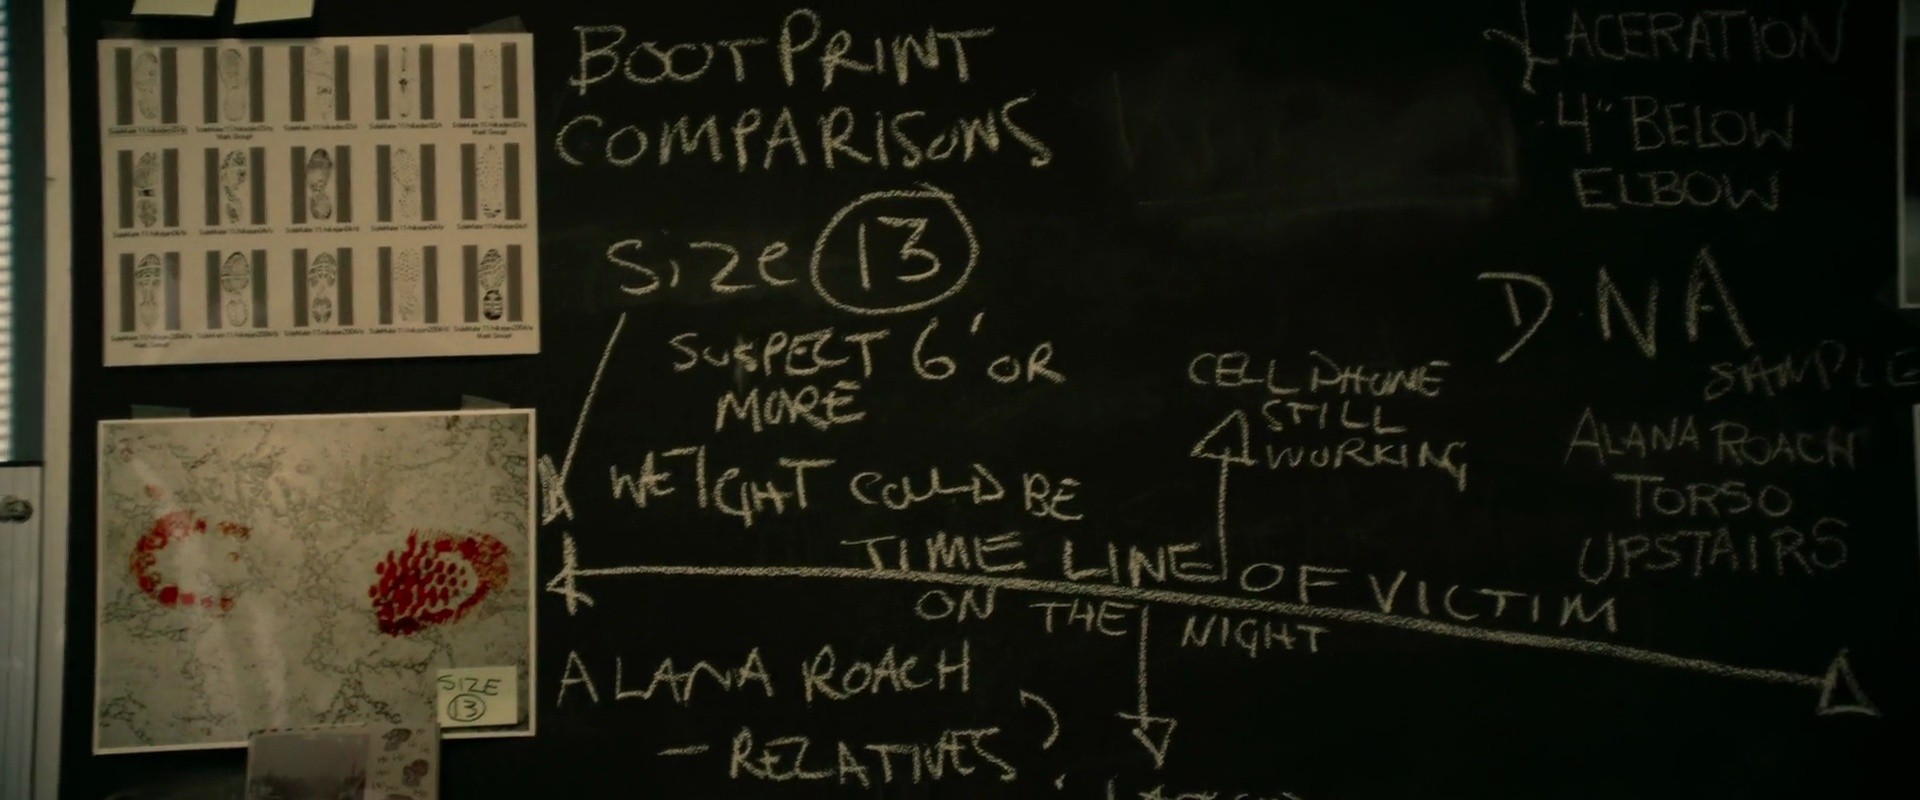 BOOTPRINT
COMPARISONS
SIZE 13
SUSPECT 6' OR
MORE
WEIGHT COULD BE
TIME LINE OF VICTIM
ON THE NIGHT
CELL PHONE
STILL
WORKING
ALANA ROACH
- RELATIVES ?
LACERATION
4" BELOW
ELBOW
DNA
SAMPLE
ALANA ROACH
TORSO
UPSTAIRS
SIZE
13